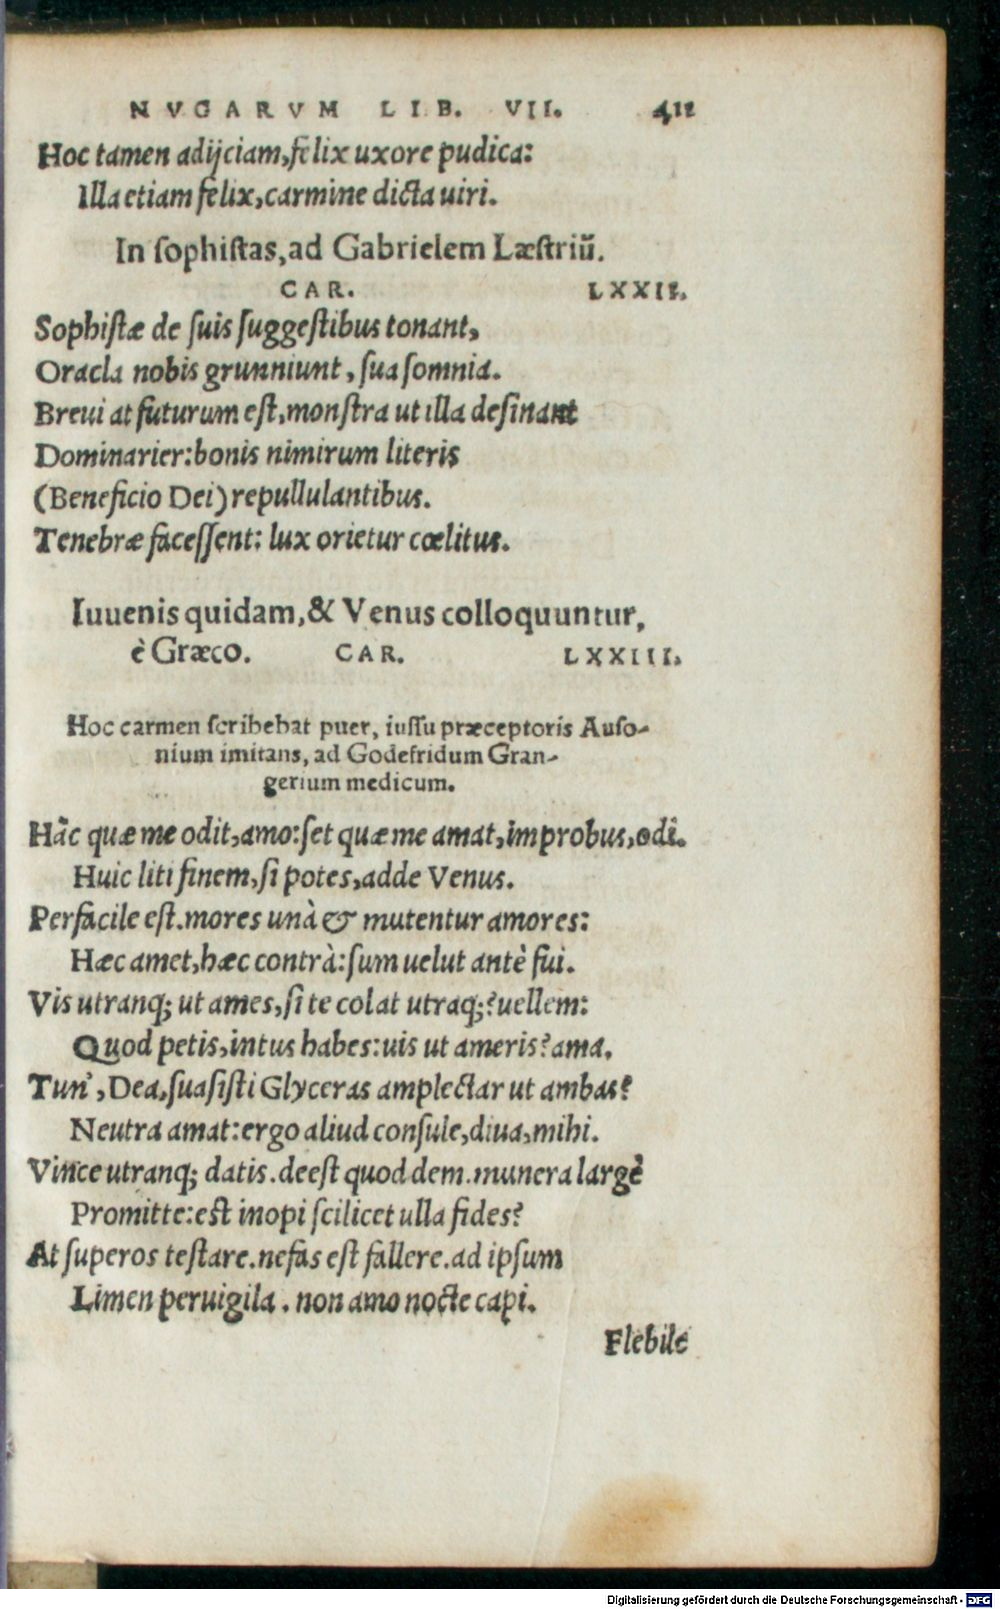 NVGARVM LIB. VII. 411
Hoc tamen adijciam, felix uxore pudica:
Illa etiam felix, carmine dicta uiri.
In sophistas, ad Gabrielem Læstriũ.
CAR. LXXII.
Sophistæ de suis suggestibus tonant,
Oracla nobis grunniunt, sua somnia.
Breui at futurum est, monstra ut illa desinant
Dominarier: bonis nimirum literis
(Beneficio Dei) repullulantibus.
Tenebræ facessent: lux orietur cœlitus.
Iuuenis quidam, & Venus colloquuntur,
è Græco. CAR. LXXIII.
Hoc carmen scribebat puer, iussu præceptoris Auso-
nium imitans, ad Godefridum Gran-
gerium medicum.
Hãc quæ me odit, amo: set quæ me amat, improbus, odi.
Huic liti finem, si potes, adde Venus.
Perfacile est. mores unà & mutentur amores:
Hæc amet, hæc contrà: sum uelut antè fui.
Vis utranq; ut ames, si te colat utraq;? uellem:
Quod petis, intus habes: uis ut ameris? ama.
Tun', Dea, suasisti Glyceras amplectar ut ambas?
Neutra amat: ergo aliud consule, diua, mihi.
Vince utranq; datis. deest quod dem. munera largè
Promitte: est inopi scilicet ulla fides?
At superos testare. nefas est fallere. ad ipsum
Limen peruigila. non amo nocte capi.
Flebile
Digitalisierung gefördert durch die Deutsche Forschungsgemeinschaft - DFG